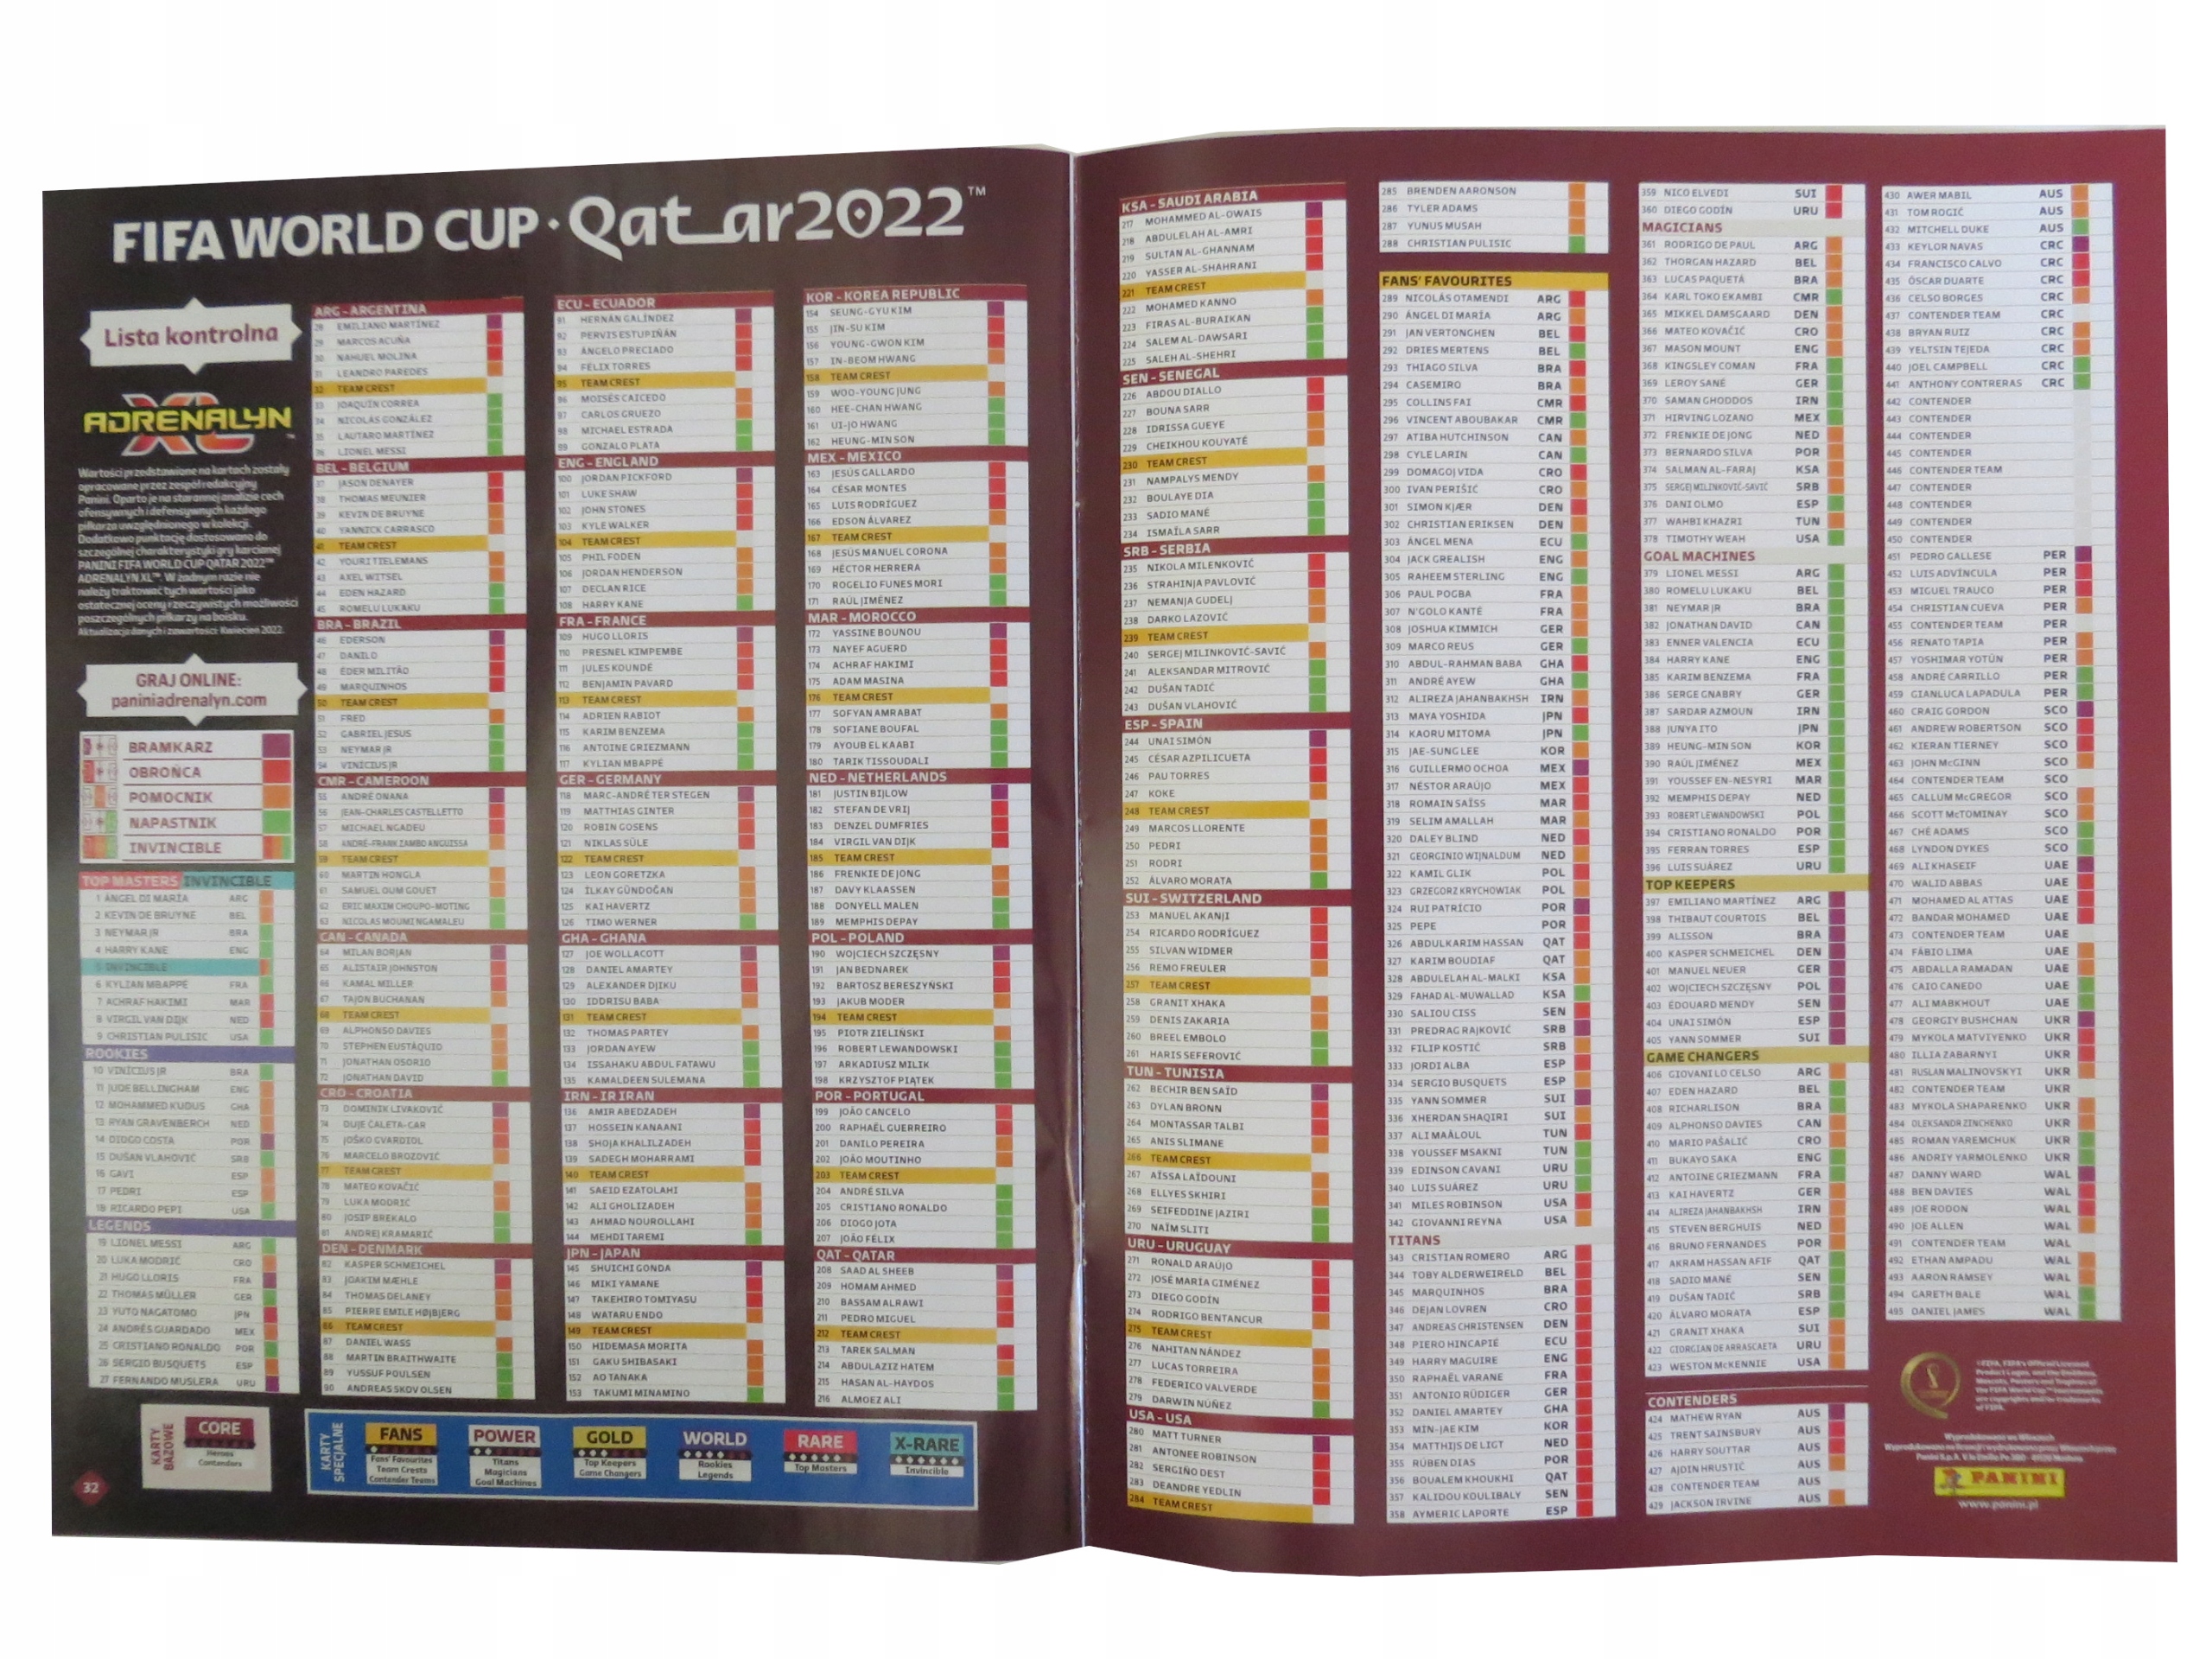 FIFA WORLD CUP · Qatar2022™
Lista kontrolna
ADRENALYN XL™
Wartości przedstawione na kartach zostały
opracowane przez zespół redakcyjny
Panini. Oparto je na starannej analizie cech
ofensywnych i defensywnych każdego
piłkarza uwzględnionego w kolekcji.
Dodatkowo punktację dostosowano do
szczególnej charakterystyki gry karcianej
PANINI FIFA WORLD CUP QATAR 2022™
ADRENALYN XL™. W żadnym razie nie
należy traktować tych wartości jako
ostatecznej oceny rzeczywistych możliwości
poszczególnych piłkarzy na boisku.
Aktualizacja danych i zawartości: Kwiecień 2022.
GRAJ ONLINE:
paniniadrenalyn.com
BRAMKARZ
OBROŃCA
POMOCNIK
NAPASTNIK
INVINCIBLE
TOP MASTERS INVINCIBLE
1 ÁNGEL DI MARÍA ARG
2 KEVIN DE BRUYNE BEL
3 NEYMAR JR BRA
4 HARRY KANE ENG
5 INVINCIBLE
6 KYLIAN MBAPPÉ FRA
7 ACHRAF HAKIMI MAR
8 VIRGIL VAN DIJK NED
9 CHRISTIAN PULISIC USA
ROOKIES
10 VINÍCIUS JR BRA
11 JUDE BELLINGHAM ENG
12 MOHAMMED KUDUS GHA
13 RYAN GRAVENBERCH NED
14 DIOGO COSTA POR
15 DUŠAN VLAHOVIĆ SRB
16 GAVI ESP
17 PEDRI ESP
18 RICARDO PEPI USA
LEGENDS
19 LIONEL MESSI ARG
20 LUKA MODRIĆ CRO
21 HUGO LLORIS FRA
22 THOMAS MÜLLER GER
23 YUTO NAGATOMO JPN
24 ANDRÉS GUARDADO MEX
25 CRISTIANO RONALDO POR
26 SERGIO BUSQUETS ESP
27 FERNANDO MUSLERA URU
ARG - ARGENTINA
28 EMILIANO MARTÍNEZ
29 MARCOS ACUÑA
30 NAHUEL MOLINA
31 LEANDRO PAREDES
32 TEAM CREST
33 JOAQUÍN CORREA
34 NICOLÁS GONZÁLEZ
35 LAUTARO MARTÍNEZ
36 LIONEL MESSI
BEL - BELGIUM
37 JASON DENAYER
38 THOMAS MEUNIER
39 KEVIN DE BRUYNE
40 YANNICK CARRASCO
41 TEAM CREST
42 YOURI TIELEMANS
43 AXEL WITSEL
44 EDEN HAZARD
45 ROMELU LUKAKU
BRA - BRAZIL
46 EDERSON
47 DANILO
48 ÉDER MILITÃO
49 MARQUINHOS
50 TEAM CREST
51 FRED
52 GABRIEL JESUS
53 NEYMAR JR
54 VINÍCIUS JR
CMR - CAMEROON
55 ANDRÉ ONANA
56 JEAN-CHARLES CASTELLETTO
57 MICHAEL NGADEU
58 ANDRÉ-FRANK ZAMBO ANGUISSA
59 TEAM CREST
60 MARTIN HONGLA
61 SAMUEL OUM GOUET
62 ERIC MAXIM CHOUPO-MOTING
63 NICOLAS MOUMI NGAMALEU
CAN - CANADA
64 MILAN BORJAN
65 ALISTAIR JOHNSTON
66 KAMAL MILLER
67 TAJON BUCHANAN
68 TEAM CREST
69 ALPHONSO DAVIES
70 STEPHEN EUSTÁQUIO
71 JONATHAN OSORIO
72 JONATHAN DAVID
CRO - CROATIA
73 DOMINIK LIVAKOVIĆ
74 DUJE ĆALETA-CAR
75 JOŠKO GVARDIOL
76 MARCELO BROZOVIĆ
77 TEAM CREST
78 MATEO KOVAČIĆ
79 LUKA MODRIĆ
80 JOSIP BREKALO
81 ANDREJ KRAMARIĆ
DEN - DENMARK
82 KASPER SCHMEICHEL
83 JOAKIM MÆHLE
84 THOMAS DELANEY
85 PIERRE EMILE HØJBJERG
86 TEAM CREST
87 DANIEL WASS
88 MARTIN BRAITHWAITE
89 YUSSUF POULSEN
90 ANDREAS SKOV OLSEN
ECU - ECUADOR
91 HERNÁN GALÍNDEZ
92 PERVIS ESTUPIÑÁN
93 ÁNGELO PRECIADO
94 FÉLIX TORRES
95 TEAM CREST
96 MOISÉS CAICEDO
97 CARLOS GRUEZO
98 MICHAEL ESTRADA
99 GONZALO PLATA
ENG - ENGLAND
100 JORDAN PICKFORD
101 LUKE SHAW
102 JOHN STONES
103 KYLE WALKER
104 TEAM CREST
105 PHIL FODEN
106 JORDAN HENDERSON
107 DECLAN RICE
108 HARRY KANE
FRA - FRANCE
109 HUGO LLORIS
110 PRESNEL KIMPEMBE
111 JULES KOUNDÉ
112 BENJAMIN PAVARD
113 TEAM CREST
114 ADRIEN RABIOT
115 KARIM BENZEMA
116 ANTOINE GRIEZMANN
117 KYLIAN MBAPPÉ
GER - GERMANY
118 MARC-ANDRÉ TER STEGEN
119 MATTHIAS GINTER
120 ROBIN GOSENS
121 NIKLAS SÜLE
122 TEAM CREST
123 LEON GORETZKA
124 İLKAY GÜNDOĞAN
125 KAI HAVERTZ
126 TIMO WERNER
GHA - GHANA
127 JOE WOLLACOTT
128 DANIEL AMARTEY
129 ALEXANDER DJIKU
130 IDDRISU BABA
131 TEAM CREST
132 THOMAS PARTEY
133 JORDAN AYEW
134 ISSAHAKU ABDUL FATAWU
135 KAMALDEEN SULEMANA
IRN - IR IRAN
136 AMIR ABEDZADEH
137 HOSSEIN KANAANI
138 SHOJA KHALILZADEH
139 SADEGH MOHARRAMI
140 TEAM CREST
141 SAEID EZATOLAHI
142 ALI GHOLIZADEH
143 AHMAD NOUROLLAHI
144 MEHDI TAREMI
JPN - JAPAN
145 SHUICHI GONDA
146 MIKI YAMANE
147 TAKEHIRO TOMIYASU
148 WATARU ENDO
149 TEAM CREST
150 HIDEMASA MORITA
151 GAKU SHIBASAKI
152 AO TANAKA
153 TAKUMI MINAMINO
KOR - KOREA REPUBLIC
154 SEUNG-GYU KIM
155 JIN-SU KIM
156 YOUNG-GWON KIM
157 IN-BEOM HWANG
158 TEAM CREST
159 WOO-YOUNG JUNG
160 HEE-CHAN HWANG
161 UI-JO HWANG
162 HEUNG-MIN SON
MEX - MEXICO
163 JESÚS GALLARDO
164 CÉSAR MONTES
165 LUIS RODRÍGUEZ
166 EDSON ÁLVAREZ
167 TEAM CREST
168 JESÚS MANUEL CORONA
169 HÉCTOR HERRERA
170 ROGELIO FUNES MORI
171 RAÚL JIMÉNEZ
MAR - MOROCCO
172 YASSINE BOUNOU
173 NAYEF AGUERD
174 ACHRAF HAKIMI
175 ADAM MASINA
176 TEAM CREST
177 SOFYAN AMRABAT
178 SOFIANE BOUFAL
179 AYOUB EL KAABI
180 TARIK TISSOUDALI
NED - NETHERLANDS
181 JUSTIN BIJLOW
182 STEFAN DE VRIJ
183 DENZEL DUMFRIES
184 VIRGIL VAN DIJK
185 TEAM CREST
186 FRENKIE DE JONG
187 DAVY KLAASSEN
188 DONYELL MALEN
189 MEMPHIS DEPAY
POL - POLAND
190 WOJCIECH SZCZĘSNY
191 JAN BEDNAREK
192 BARTOSZ BERESZYŃSKI
193 JAKUB MODER
194 TEAM CREST
195 PIOTR ZIELIŃSKI
196 ROBERT LEWANDOWSKI
197 ARKADIUSZ MILIK
198 KRZYSZTOF PIĄTEK
POR - PORTUGAL
199 JOÃO CANCELO
200 RAPHAËL GUERREIRO
201 DANILO PEREIRA
202 JOÃO MOUTINHO
203 TEAM CREST
204 ANDRÉ SILVA
205 CRISTIANO RONALDO
206 DIOGO JOTA
207 JOÃO FÉLIX
QAT - QATAR
208 SAAD AL SHEEB
209 HOMAM AHMED
210 BASSAM ALRAWI
211 PEDRO MIGUEL
212 TEAM CREST
213 TAREK SALMAN
214 ABDULAZIZ HATEM
215 HASAN AL-HAYDOS
216 ALMOEZ ALI
KARTY BAZOWE
CORE
Heroes
Contenders
KARTY SPECJALNE
FANS
Fans' Favourites
Team Crests
Contender Teams
POWER
Titans
Magicians
Goal Machines
GOLD
Top Keepers
Game Changers
WORLD
Rookies
Legends
RARE
Top Masters
X-RARE
Invincible
32
KSA - SAUDI ARABIA
217 MOHAMMED AL-OWAIS
218 ABDULELAH AL-AMRI
219 SULTAN AL-GHANNAM
220 YASSER AL-SHAHRANI
221 TEAM CREST
222 MOHAMED KANNO
223 FIRAS AL-BURAIKAN
224 SALEM AL-DAWSARI
225 SALEH AL-SHEHRI
SEN - SENEGAL
226 ABDOU DIALLO
227 BOUNA SARR
228 IDRISSA GUEYE
229 CHEIKHOU KOUYATÉ
230 TEAM CREST
231 NAMPALYS MENDY
232 BOULAYE DIA
233 SADIO MANÉ
234 ISMAÏLA SARR
SRB - SERBIA
235 NIKOLA MILENKOVIĆ
236 STRAHINJA PAVLOVIĆ
237 NEMANJA GUDELJ
238 DARKO LAZOVIĆ
239 TEAM CREST
240 SERGEJ MILINKOVIĆ-SAVIĆ
241 ALEKSANDAR MITROVIĆ
242 DUŠAN TADIĆ
243 DUŠAN VLAHOVIĆ
ESP - SPAIN
244 UNAI SIMÓN
245 CÉSAR AZPILICUETA
246 PAU TORRES
247 KOKE
248 TEAM CREST
249 MARCOS LLORENTE
250 PEDRI
251 RODRI
252 ÁLVARO MORATA
SUI - SWITZERLAND
253 MANUEL AKANJI
254 RICARDO RODRÍGUEZ
255 SILVAN WIDMER
256 REMO FREULER
257 TEAM CREST
258 GRANIT XHAKA
259 DENIS ZAKARIA
260 BREEL EMBOLO
261 HARIS SEFEROVIĆ
TUN - TUNISIA
262 BECHIR BEN SAÏD
263 DYLAN BRONN
264 MONTASSAR TALBI
265 ANIS SLIMANE
266 TEAM CREST
267 AÏSSA LAÏDOUNI
268 ELLYES SKHIRI
269 SEIFEDDINE JAZIRI
270 NAÏM SLITI
URU - URUGUAY
271 RONALD ARAÚJO
272 JOSÉ MARÍA GIMÉNEZ
273 DIEGO GODÍN
274 RODRIGO BENTANCUR
275 TEAM CREST
276 NAHITAN NÁNDEZ
277 LUCAS TORREIRA
278 FEDERICO VALVERDE
279 DARWIN NÚÑEZ
USA - USA
280 MATT TURNER
281 ANTONEE ROBINSON
282 SERGIÑO DEST
283 DEANDRE YEDLIN
284 TEAM CREST
285 BRENDEN AARONSON
286 TYLER ADAMS
287 YUNUS MUSAH
288 CHRISTIAN PULISIC
FANS' FAVOURITES
289 NICOLÁS OTAMENDI ARG
290 ÁNGEL DI MARÍA ARG
291 JAN VERTONGHEN BEL
292 DRIES MERTENS BEL
293 THIAGO SILVA BRA
294 CASEMIRO BRA
295 COLLINS FAI CMR
296 VINCENT ABOUBAKAR CMR
297 ATIBA HUTCHINSON CAN
298 CYLE LARIN CAN
299 DOMAGOJ VIDA CRO
300 IVAN PERIŠIĆ CRO
301 SIMON KJÆR DEN
302 CHRISTIAN ERIKSEN DEN
303 ÁNGEL MENA ECU
304 JACK GREALISH ENG
305 RAHEEM STERLING ENG
306 PAUL POGBA FRA
307 N'GOLO KANTÉ FRA
308 JOSHUA KIMMICH GER
309 MARCO REUS GER
310 ABDUL-RAHMAN BABA GHA
311 ANDRÉ AYEW GHA
312 ALIREZA JAHANBAKHSH IRN
313 MAYA YOSHIDA JPN
314 KAORU MITOMA JPN
315 JAE-SUNG LEE KOR
316 GUILLERMO OCHOA MEX
317 NÉSTOR ARAÚJO MEX
318 ROMAIN SAÏSS MAR
319 SELIM AMALLAH MAR
320 DALEY BLIND NED
321 GEORGINIO WIJNALDUM NED
322 KAMIL GLIK POL
323 GRZEGORZ KRYCHOWIAK POL
324 RUI PATRÍCIO POR
325 PEPE POR
326 ABDULKARIM HASSAN QAT
327 KARIM BOUDIAF QAT
328 ABDULELAH AL-MALKI KSA
329 FAHAD AL-MUWALLAD KSA
330 SALIOU CISS SEN
331 PREDRAG RAJKOVIĆ SRB
332 FILIP KOSTIĆ SRB
333 JORDI ALBA ESP
334 SERGIO BUSQUETS ESP
335 YANN SOMMER SUI
336 XHERDAN SHAQIRI SUI
337 ALI MAÂLOUL TUN
338 YOUSSEF MSAKNI TUN
339 EDINSON CAVANI URU
340 LUIS SUÁREZ URU
341 MILES ROBINSON USA
342 GIOVANNI REYNA USA
TITANS
343 CRISTIAN ROMERO ARG
344 TOBY ALDERWEIRELD BEL
345 MARQUINHOS BRA
346 DEJAN LOVREN CRO
347 ANDREAS CHRISTENSEN DEN
348 PIERO HINCAPIÉ ECU
349 HARRY MAGUIRE ENG
350 RAPHAËL VARANE FRA
351 ANTONIO RÜDIGER GER
352 DANIEL AMARTEY GHA
353 MIN-JAE KIM KOR
354 MATTHIJS DE LIGT NED
355 RÚBEN DIAS POR
356 BOUALEM KHOUKHI QAT
357 KALIDOU KOULIBALY SEN
358 AYMERIC LAPORTE ESP
359 NICO ELVEDI SUI
360 DIEGO GODÍN URU
MAGICIANS
361 RODRIGO DE PAUL ARG
362 THORGAN HAZARD BEL
363 LUCAS PAQUETÁ BRA
364 KARL TOKO EKAMBI CMR
365 MIKKEL DAMSGAARD DEN
366 MATEO KOVAČIĆ CRO
367 MASON MOUNT ENG
368 KINGSLEY COMAN FRA
369 LEROY SANÉ GER
370 SAMAN GHODDOS IRN
371 HIRVING LOZANO MEX
372 FRENKIE DE JONG NED
373 BERNARDO SILVA POR
374 SALMAN AL-FARAJ KSA
375 SERGEJ MILINKOVIĆ-SAVIĆ SRB
376 DANI OLMO ESP
377 WAHBI KHAZRI TUN
378 TIMOTHY WEAH USA
GOAL MACHINES
379 LIONEL MESSI ARG
380 ROMELU LUKAKU BEL
381 NEYMAR JR BRA
382 JONATHAN DAVID CAN
383 ENNER VALENCIA ECU
384 HARRY KANE ENG
385 KARIM BENZEMA FRA
386 SERGE GNABRY GER
387 SARDAR AZMOUN IRN
388 JUNYA ITO JPN
389 HEUNG-MIN SON KOR
390 RAÚL JIMÉNEZ MEX
391 YOUSSEF EN-NESYRI MAR
392 MEMPHIS DEPAY NED
393 ROBERT LEWANDOWSKI POL
394 CRISTIANO RONALDO POR
395 FERRAN TORRES ESP
396 LUIS SUÁREZ URU
TOP KEEPERS
397 EMILIANO MARTÍNEZ ARG
398 THIBAUT COURTOIS BEL
399 ALISSON BRA
400 KASPER SCHMEICHEL DEN
401 MANUEL NEUER GER
402 WOJCIECH SZCZĘSNY POL
403 ÉDOUARD MENDY SEN
404 UNAI SIMÓN ESP
405 YANN SOMMER SUI
GAME CHANGERS
406 GIOVANI LO CELSO ARG
407 EDEN HAZARD BEL
408 RICHARLISON BRA
409 ALPHONSO DAVIES CAN
410 MARIO PAŠALIĆ CRO
411 BUKAYO SAKA ENG
412 ANTOINE GRIEZMANN FRA
413 KAI HAVERTZ GER
414 ALIREZA JAHANBAKHSH IRN
415 STEVEN BERGHUIS NED
416 BRUNO FERNANDES POR
417 AKRAM HASSAN AFIF QAT
418 SADIO MANÉ SEN
419 DUŠAN TADIĆ SRB
420 ÁLVARO MORATA ESP
421 GRANIT XHAKA SUI
422 GIORGIAN DE ARRASCAETA URU
423 WESTON McKENNIE USA
CONTENDERS
424 MATHEW RYAN AUS
425 TRENT SAINSBURY AUS
426 HARRY SOUTTAR AUS
427 AJDIN HRUSTIĆ AUS
428 CONTENDER TEAM AUS
429 JACKSON IRVINE AUS
430 AWER MABIL AUS
431 TOM ROGIĆ AUS
432 MITCHELL DUKE AUS
433 KEYLOR NAVAS CRC
434 FRANCISCO CALVO CRC
435 ÓSCAR DUARTE CRC
436 CELSO BORGES CRC
437 CONTENDER TEAM CRC
438 BRYAN RUIZ CRC
439 YELTSIN TEJEDA CRC
440 JOEL CAMPBELL CRC
441 ANTHONY CONTRERAS CRC
442 CONTENDER
443 CONTENDER
444 CONTENDER
445 CONTENDER
446 CONTENDER TEAM
447 CONTENDER
448 CONTENDER
449 CONTENDER
450 CONTENDER
451 PEDRO GALLESE PER
452 LUIS ADVÍNCULA PER
453 MIGUEL TRAUCO PER
454 CHRISTIAN CUEVA PER
455 CONTENDER TEAM PER
456 RENATO TAPIA PER
457 YOSHIMAR YOTÚN PER
458 ANDRÉ CARRILLO PER
459 GIANLUCA LAPADULA PER
460 CRAIG GORDON SCO
461 ANDREW ROBERTSON SCO
462 KIERAN TIERNEY SCO
463 JOHN McGINN SCO
464 CONTENDER TEAM SCO
465 CALLUM McGREGOR SCO
466 SCOTT McTOMINAY SCO
467 CHÉ ADAMS SCO
468 LYNDON DYKES SCO
469 ALI KHASEIF UAE
470 WALID ABBAS UAE
471 MOHAMED AL ATTAS UAE
472 BANDAR MOHAMED UAE
473 CONTENDER TEAM UAE
474 FÁBIO LIMA UAE
475 ABDALLA RAMADAN UAE
476 CAIO CANEDO UAE
477 ALI MABKHOUT UAE
478 GEORGIY BUSHCHAN UKR
479 MYKOLA MATVIYENKO UKR
480 ILLIA ZABARNYI UKR
481 RUSLAN MALINOVSKYI UKR
482 CONTENDER TEAM UKR
483 MYKOLA SHAPARENKO UKR
484 OLEKSANDR ZINCHENKO UKR
485 ROMAN YAREMCHUK UKR
486 ANDRIY YARMOLENKO UKR
487 DANNY WARD WAL
488 BEN DAVIES WAL
489 JOE RODON WAL
490 JOE ALLEN WAL
491 CONTENDER TEAM WAL
492 ETHAN AMPADU WAL
493 AARON RAMSEY WAL
494 GARETH BALE WAL
495 DANIEL JAMES WAL
©FIFA, FIFA's Official Licensed
Product Logos, and the Emblems,
Mascots, Posters and Trophies of
the FIFA World Cup™ tournaments
are copyrights and/or trademarks
of FIFA.
Wyprodukowano we Włoszech
PANINI
www.panini.pl